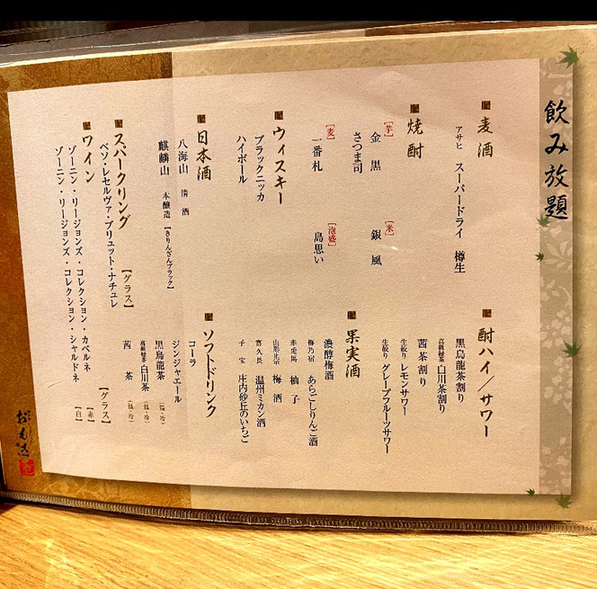 飲み放題
麦酒
アサヒ スーパードライ 樽生
焼酎
【芋】
金黒
さつま司
【麦】
一番札
【米】
銀風
【泡盛】
島思い
ウィスキー
ブラックニッカ
ハイボール
日本酒
八海山 清酒
麒麟山 本醸造 【きりんざんブラック】
スパークリング
ベソ・レセルヴァ・ブリュット・ナチュレ 【グラス】
ワイン
ゾーニン・リージョンズ・コレクション・カベルネ 【赤】
ゾーニン・リージョンズ・コレクション・シャルドネ 【白】
【グラス】
酎ハイ/サワー
黒烏龍茶割り
高級緑茶 白川茶割り
茜茶割り
生絞り レモンサワー
生絞り グレープフルーツサワー
果実酒
濃醇梅酒
梅乃宿 あらごしりんご酒
赤兎馬 柚子
山形正宗 梅酒
喜久長 温州ミカン酒
子宝 庄内砂丘のいちご
ソフトドリンク
コーラ
ジンジャエール
黒烏龍茶 【温・冷】
高級緑茶 白川茶 【温・冷】
茜茶 【温・冷】